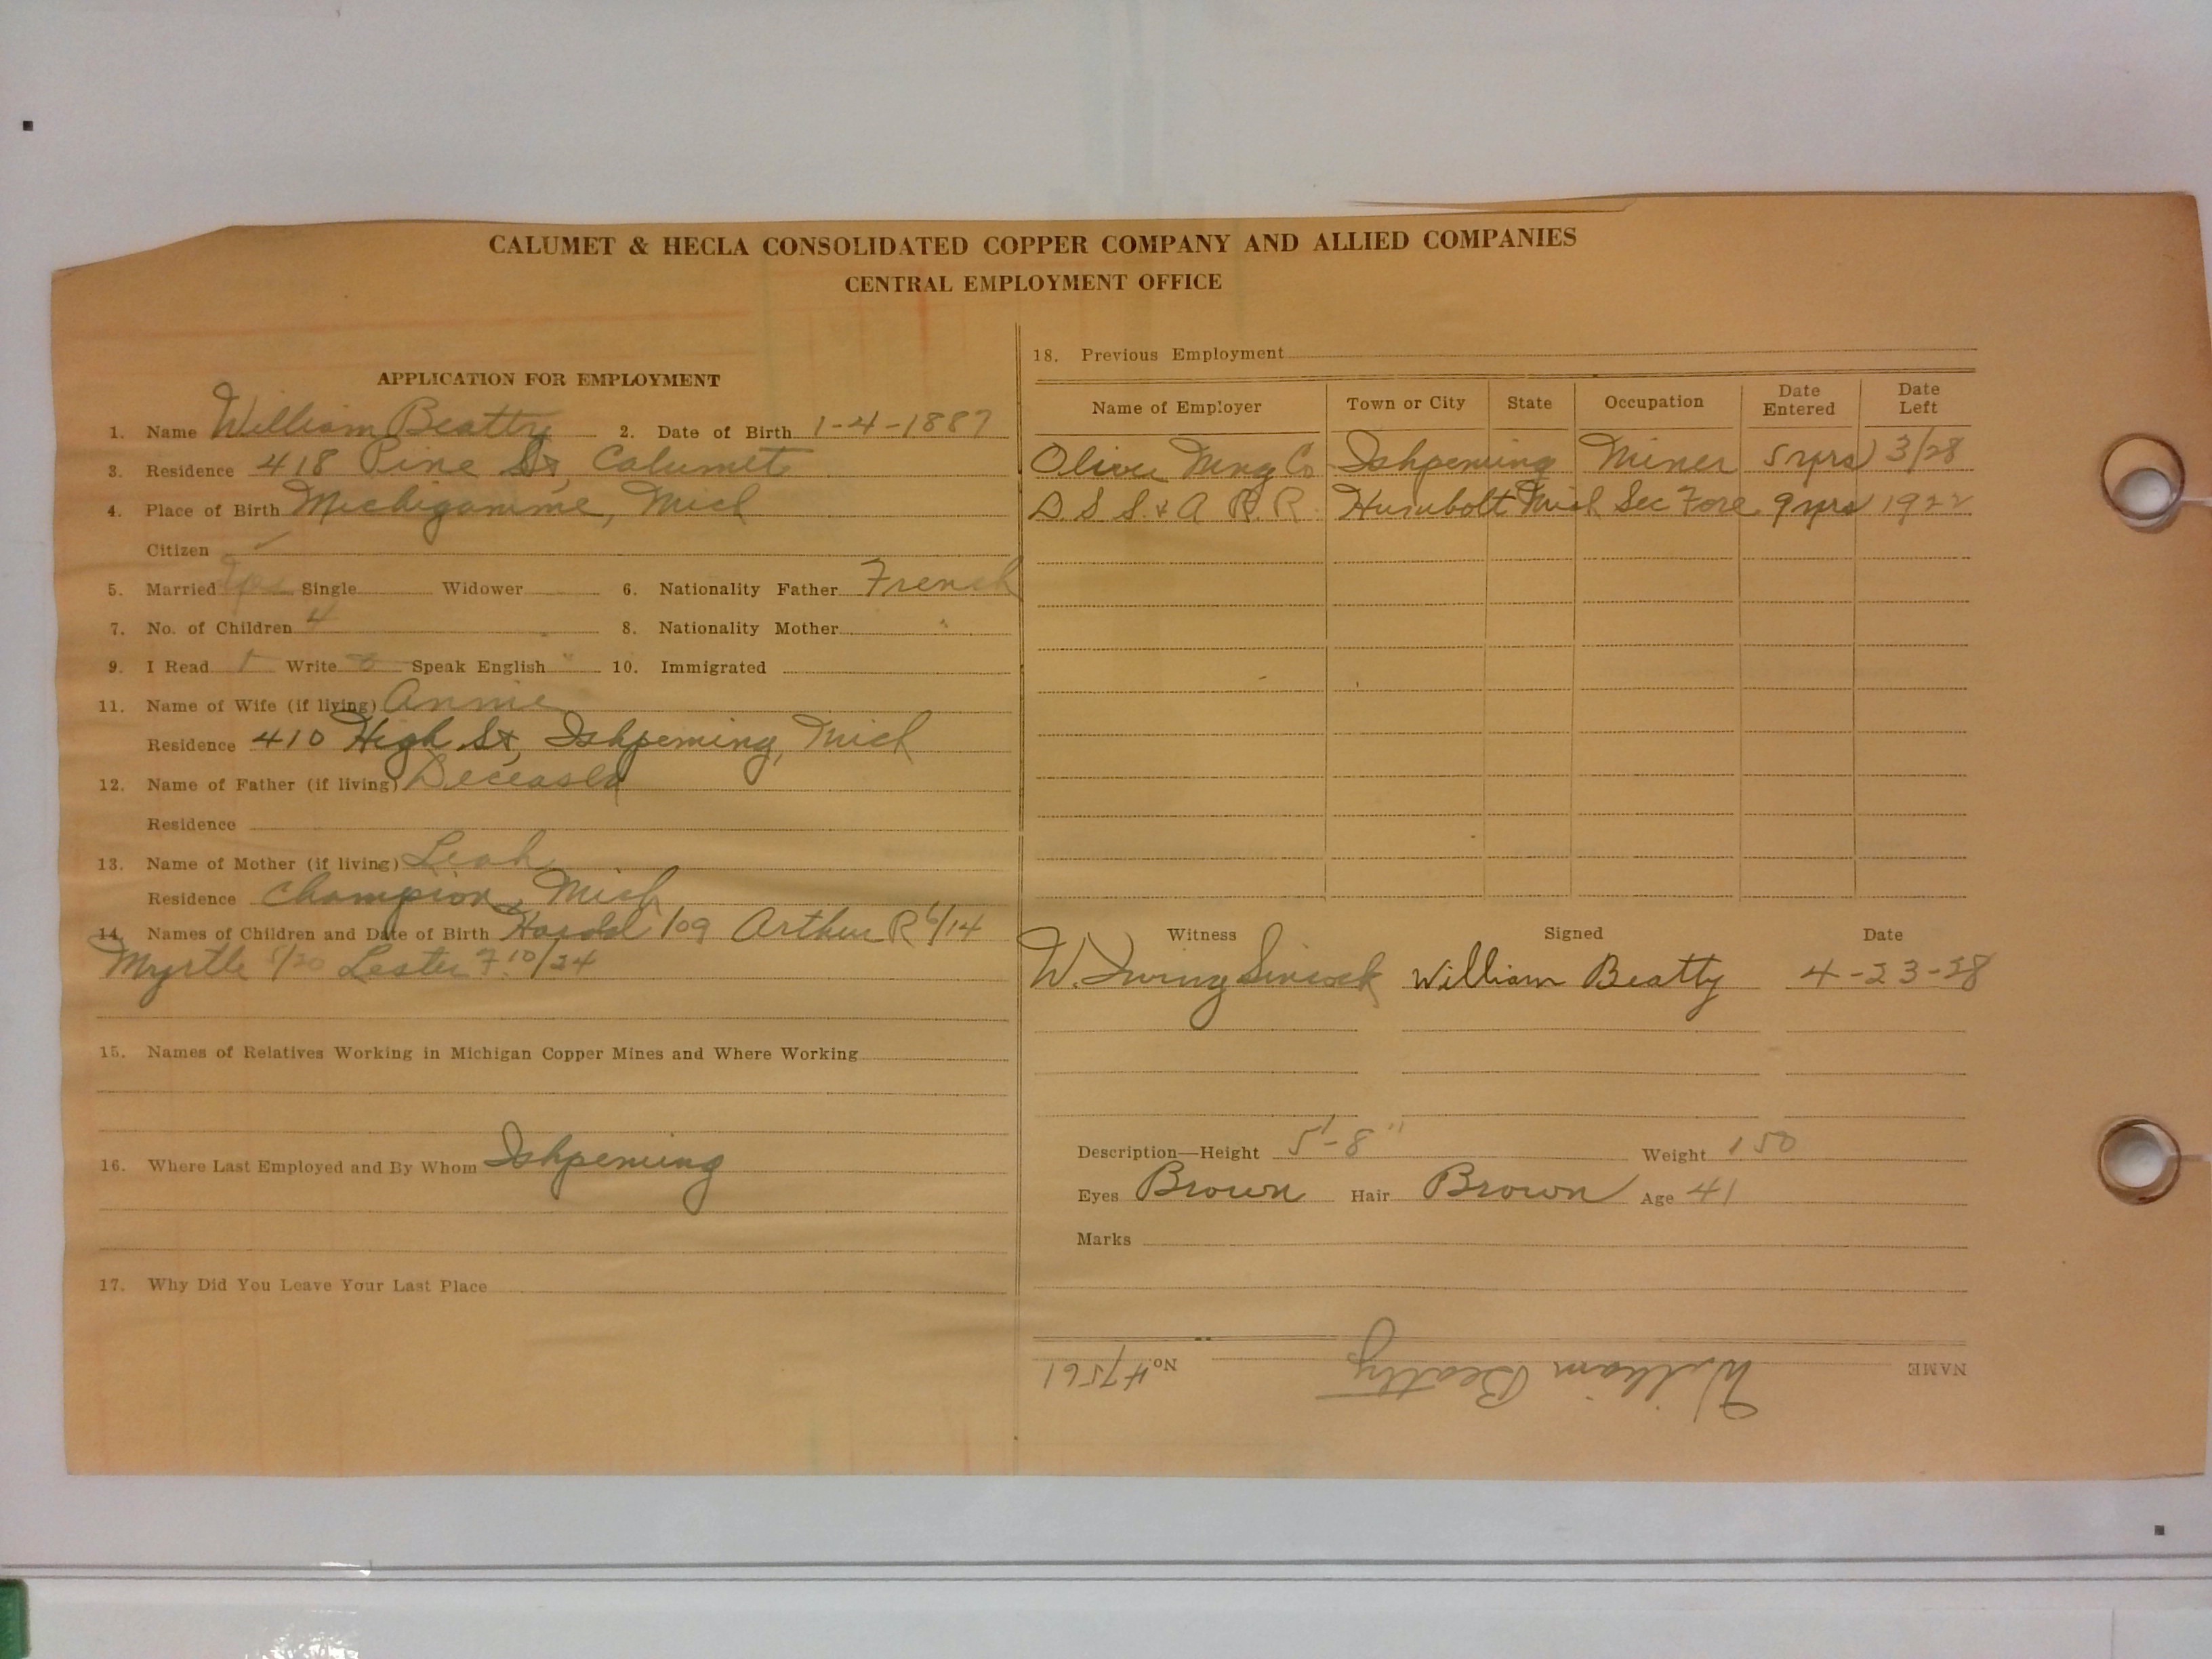 CALUMET & HECLA CONSOLIDATED COPPER COMPANY AND ALLIED COMPANIES
CENTRAL EMPLOYMENT OFFICE
APPLICATION FOR EMPLOYMENT
1. Name William Beatty 2. Date of Birth 1-4-1887
3. Residence 418 Pine St, Calumet
4. Place of Birth Michigamme, Mich
Citizen ✓
5. Married yes Single Widower 6. Nationality Father French
7. No. of Children 4 8. Nationality Mother "
9. I Read Write Speak English 10. Immigrated
11. Name of Wife (if living) Annie
Residence 410 High St, Ishpeming, Mich
12. Name of Father (if living) Deceased
Residence
13. Name of Mother (if living) Leah
Residence Champion, Mich
14. Names of Children and Date of Birth Harold /09 Arthur R 6/14
Myrtle /20 Lester F. 10/24
15. Names of Relatives Working in Michigan Copper Mines and Where Working
16. Where Last Employed and By Whom Ishpeming
17. Why Did You Leave Your Last Place
18. Previous Employment
Name of Employer Town or City State Occupation Date Entered Date Left
Oliver Mng Co Ishpeming Miner 5 yrs 3/28
D. S S. & A R. R. Humbolt Mich Sec Fore 9 yrs 1922
Witness Signed Date
W. Irving Sincock William Beatty 4-23-28
Description—Height 5'-8" Weight 150
Eyes Brown Hair Brown Age 41
Marks
NAME William Beatty No. #7561